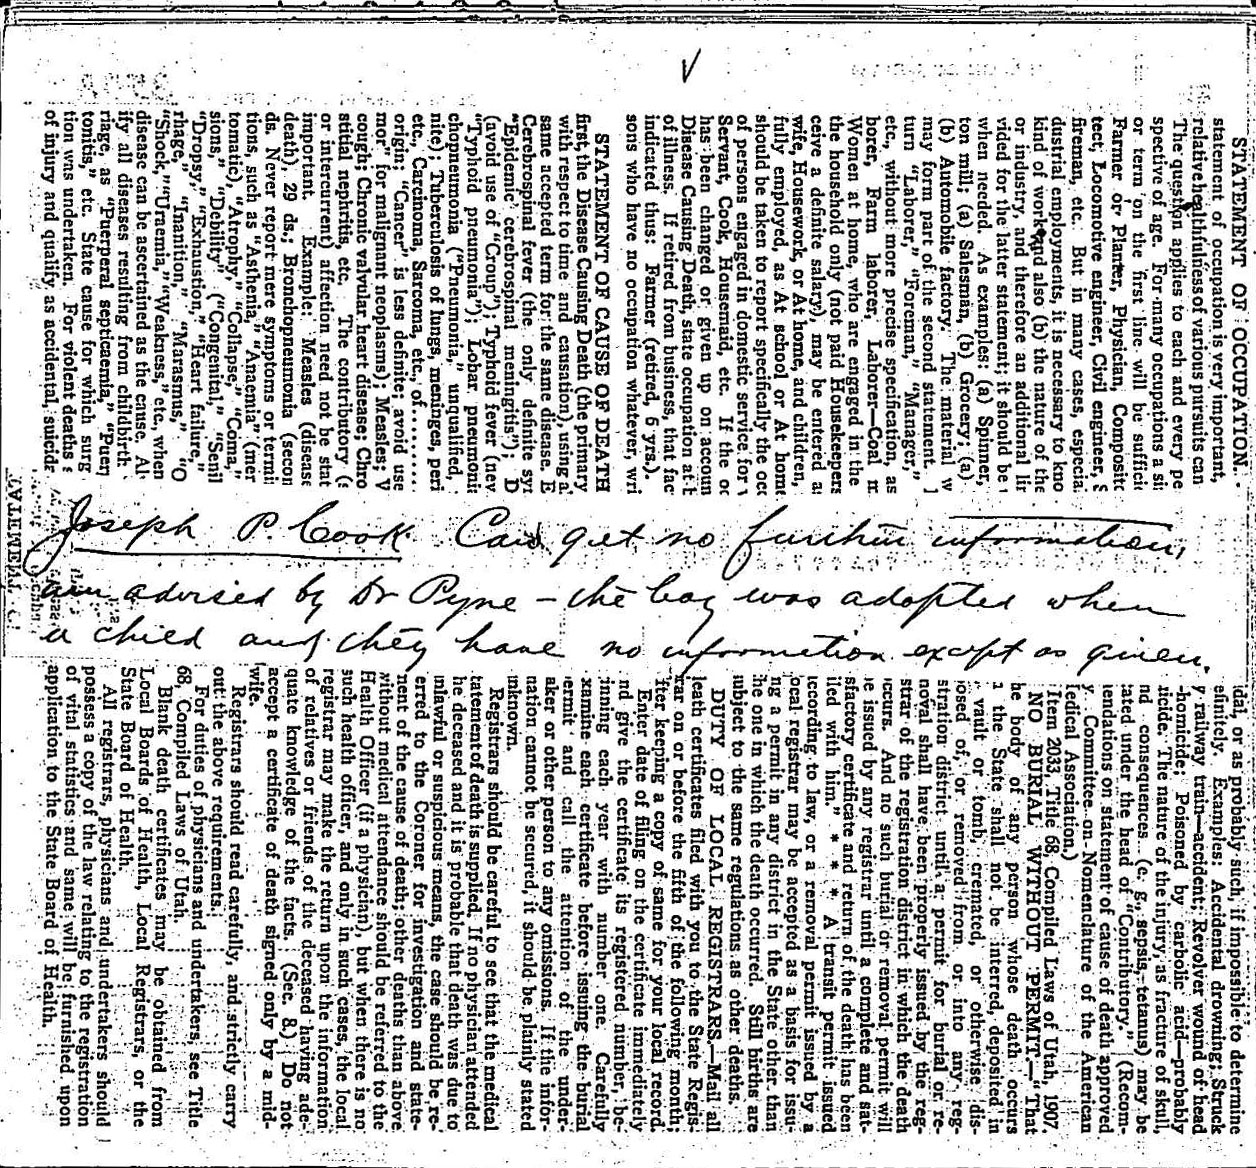 STATEMENT OF OCCUPATION.
statement of occupation is very important,
relative healthfulness of various pursuits can
The question applies to each and every pe
spective of age. For many occupations a si
or term on the first line will be sufficie
Farmer or Planter, Physician, Composito
tect, Locomotive engineer, Civil engineer, S
fireman, etc. But in many cases, especia
dustrial employments, it is necessary to kno
kind of work and also (b) the nature of the
or industry, and therefore an additional lin
vided for the latter statement; it should be u
when needed. As examples: (a) Spinner,
ton mill; (a) Salesman, (b) Grocery; (a)
(b) Automobile factory. The material w
may form part of the second statement.
turn "Laborer," "Foreman," "Manager,"
etc., without more precise specification, as
borer, Farm laborer, Laborer—Coal m
Women at home, who are engaged in the
the household only (not paid Housekeepers
ceive a definite salary), may be entered a
wife, Housework, or At home, and children,
fully employed, as At school or At home
should be taken to report specifically the occ
of persons engaged in domestic service for
Servant, Cook, Housemaid, etc. If the oc
has been changed or given up on accoun
Disease Causing Death, state occupation at b
of illness. If retired from business, that fac
indicated thus: Farmer (retired, 6 yrs.).
sons who have no occupation whatever, wri
STATEMENT OF CAUSE OF DEATH
first, the Disease Causing Death (the primary
with respect to time and causation), using a
same accepted term for the same disease. E
Cerebrospinal fever (the only definite sy
"Epidemic cerebrospinal meningitis"); D
(avoid use of "Croup"); Typhoid fever (nev
"Typhoid pneumonia"); Lobar pneumonia
chopneumonia ("Pneumonia," unqualified,
nite); Tuberculosis of lungs, meninges, peri
etc., Carcinoma, Sarcoma, etc., of........
origin; "Cancer" is less definite; avoid use
mor" for malignant neoplasms); Measles; W
cough; Chronic valvular heart disease; Chro
stitial nephritis, etc. The contributory (s
or intercurrent) affection need not be stat
important. Example: Measles (disease
death), 29 ds.; Bronchopneumonia (secon
ds. Never report mere symptoms or termi
tions, such as "Asthenia," "Anaemia" (mer
tomatic), "Atrophy," "Collapse," "Coma,"
sions," "Debility" ("Congenital," "Senil
"Dropsy," "Exhaustion," "Heart failure,"
rhage, "Inanition," "Marasmus," "O
"Shock," "Uraemia," "Weakness," etc., when
disease can be ascertained as the cause. Al
ify all diseases resulting from childbirth
riage, as "Puerperal septicaemia," "Puerp
tonitis," etc. State cause for which surg
tion was undertaken. For violent deaths s
of injury and qualify as accidental, suicida
Joseph P. Cook. Can get no further information,
am advised by Dr Pyne - the boy was adopted when
a child and they have no information except as given.
idal, or as probably such, if impossible to determine
efinitely. Examples: Accidental drowning; Struck
y railway train—accident; Revolver wound of head
-homicide; Poisoned by carbolic acid—probably
icide. The nature of the injury, as fracture of skull,
nd consequences (e. g., sepsis, tetanus) may be
tated under the head of "Contributory." (Recom-
endations on statement of cause of death approved
y Committee on Nomenclature of the American
ledical Association.)
Item 2033, Title 68, Compiled Laws of Utah, 1907.
NO BURIAL WITHOUT PERMIT—"That
he body of any person whose death occurs
the State shall not be interred, deposited in
vault or tomb, cremated, or otherwise dis-
osed of, or removed from or into any reg-
stration district until a permit for burial or re-
noval shall have been properly issued by the reg-
strar of the registration district in which the death
ccurs. And no such burial or removal permit will
e issued by any registrar until a complete and sat-
sfactory certificate and return of the death has been
iled with him." * * * A transit permit issued
ccording to law, or a removal permit issued by a
ocal registrar may be accepted as a basis for issu-
ng a permit in any district in the State other than
he one in which the death occurred. Still births are
ubject to the same regulations as other deaths.
DUTY OF LOCAL REGISTRARS.—Mail all
eath certificates filed with you to the State Regis-
rar on or before the fifth of the following month;
fter keeping a copy of same for your local record.
Enter date of filing on the certificate immediately
nd give the certificate its registered number, be-
inning each year with number one. Carefully
xamine each certificate before issuing the burial
ermit and call the attention of the under-
aker or other person to any omissions. If the infor-
nation cannot be secured, it should be plainly stated
nknown.
Registrars should be careful to see that the medical
tatement of death is supplied. If no physician attended
he deceased and it is probable that death was due to
nlawful or suspicious means, the case should be re-
erred to the Coroner for investigation and state-
nent of the cause of death; other deaths than above
without medical attendance should be referred to the
Health Officer (if a physician), but when there is no
such health officer, and only in such cases, the local
registrar may make the return upon the information
of relatives or friends of the deceased having ade-
quate knowledge of the facts. (Sec. 8.) Do not
accept a certificate of death signed only by a mid-
wife.
Registrars should read carefully, and strictly carry
out the above requirements.
For duties of physicians and undertakers, see Title
68, Compiled Laws of Utah.
Blank death certificates may be obtained from
Local Boards of Health, Local Registrars, or the
State Board of Health.
All registrars, physicians and undertakers should
possess a copy of the law relating to the registration
of vital statistics and same will be furnished upon
application to the State Board of Health.